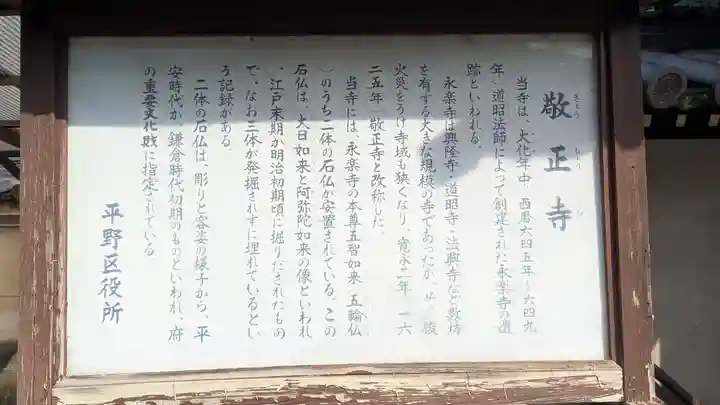 敬正寺
きょう しょう じ
当寺は、大化年中 西暦六四五年〜六四九
年、道昭法師によって創建された永楽寺の遺
跡といわれる。
永楽寺は興隆寺・道昭寺・法興寺など数坊
を有する大きな規模の寺であったが、
火災をうけ寺域も狭くなり、寛永二年 一六
二五年 敬正寺と改称した。
当寺には、永楽寺の本尊五智如来 五輪仏
)のうち二体の石仏が安置されている。この
石仏は、大日如来と阿弥陀如来の像といわれ
、江戸末期か明治初期頃に掘りだされたもの
で、なお三体が発掘されずに埋れているとい
う記録がある。
二体の石仏は、彫りと容姿の様子から、平
安時代か、鎌倉時代初期のものといわれ、府
の重要文化財に指定されている
平野区役所